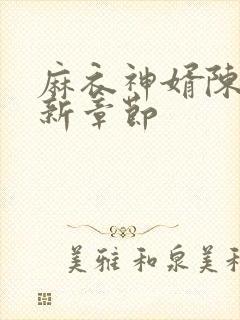 麻衣神婿陈
新章节
美雅 和泉美和